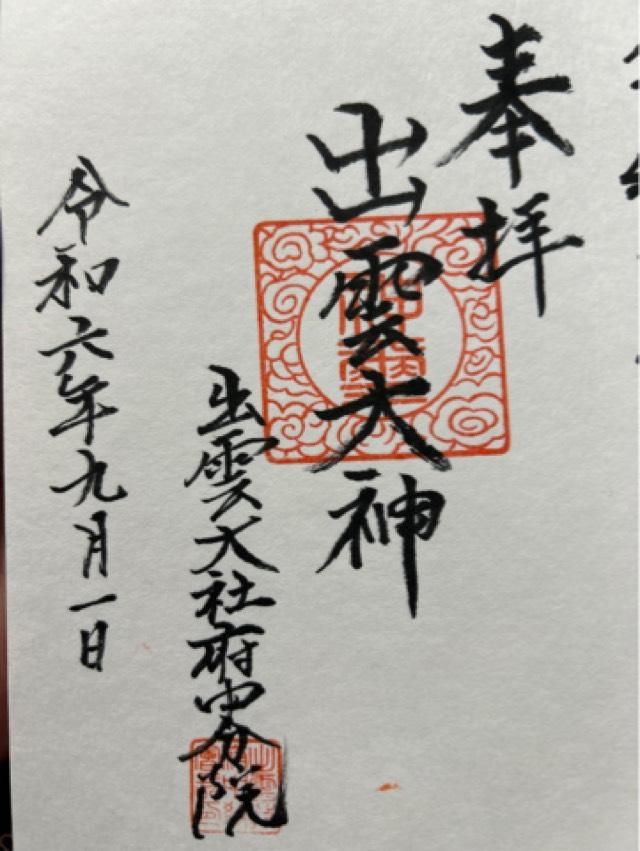 奉拝
出雲大神
出雲大社府中分院
令和六年九月一日